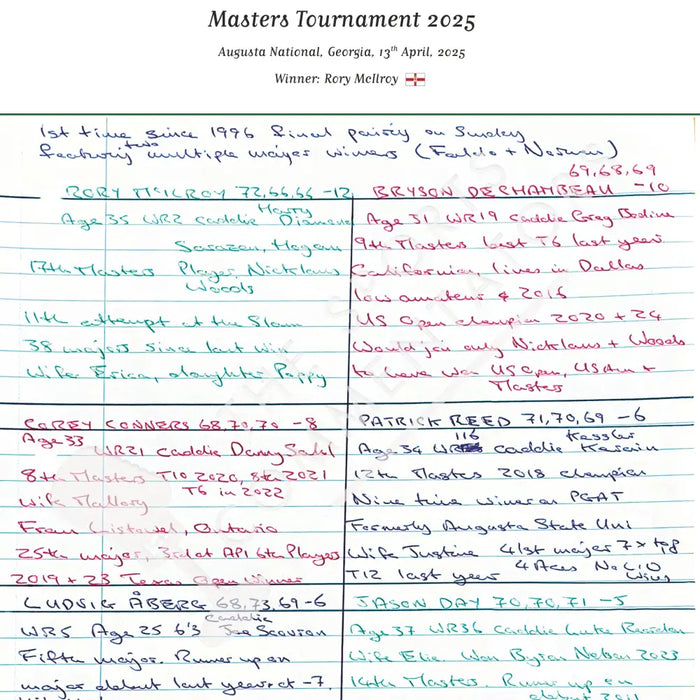 Masters Tournament 2025
Augusta National, Georgia, 13th April, 2025
Winner: Rory McIlroy
1st time since 1996 final pairing on Sunday
featuring two multiple major winners (Faldo + Norman)
69,68,69
RORY McILROY 72,66,66 -12
BRYSON DECHAMBEAU -10
Age 35 WR2 caddie Harry Diamond
Sarazen, Hogan
17th Masters Player, Nicklaus
Woods
11th attempt at the Slam
38 majors since last win
Wife Erica, daughter Poppy
Age 31 WR19 caddie Greg Bodine
9th Masters best T6 last year
Californian, lives in Dallas
low amateur 2016
US Open champion 2020 + 24
Would join only Nicklaus + Woods
to have won US Open, US Am +
Masters
COREY CONNERS 68,70,70 -8
Age 33
WR21 caddie Danny Sahl
8th Masters T10 2020, 8th 2021
T6 in 2022
Wife Mallory
From Listowel, Ontario
25th major, 3rd at API 6th Players
2019 + 23 Texas Open winner
PATRICK REED 71,70,69 -6
Age 34 WR 116 caddie Kessler Karain
12th Masters 2018 champion
Nine time winner on PGAT
Formerly Augusta State Uni
Wife Justine 41st major 7 x top 8
T12 last year 4 Aces No LIV
wins
LUDVIG ÅBERG 68,73,69 -6
WR5 Age 25 6'3 caddie Joe Scovron
Fifth major. Runner up on
major debut last year at -7.
JASON DAY 70,70,71 -5
Age 37 WR36 caddie Luke Reardon
Wife Ellie Won Byron Nelson 2023
14th Masters. Runner up on
debut 2011